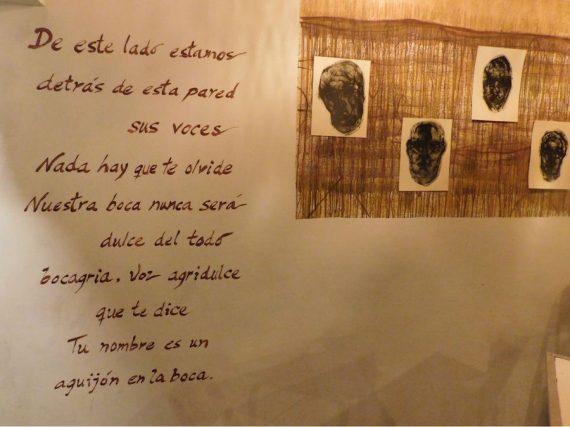 De este lado estamos
detrás de esta pared
sus voces
Nada hay que te olvide
Nuestra boca nunca será
dulce del todo
bocagria. Voz agridulce
que te dice
Tu nombre es un
aguijón en la boca.